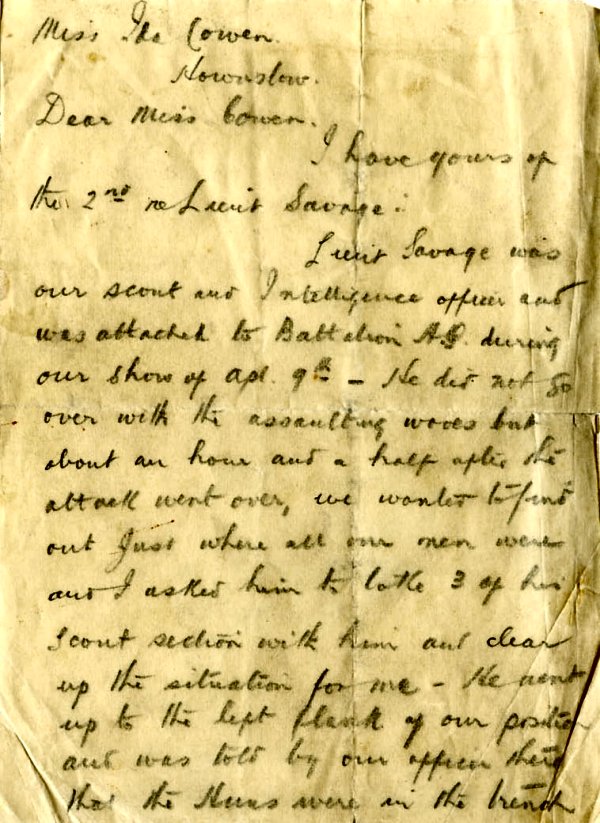 Miss Ida Cowen.
Hownslow.
Dear Miss Cowen.
I have yours of
the 2nd re Lieut Savage.
Lieut Savage was
our scout and Intelligence officer and
was attached to Battalion H.Q. during
our show of Apl. 9th – He did not go
over with the assaulting waves but
about an hour and a half after the
attack went over, we wanted to find
out Just where all our men were
and I asked him to take 3 of his
scout section with him and clear
up the situation for me – He went
up to the left flank of our position
and was told by our officer there
that the Huns were in the trench